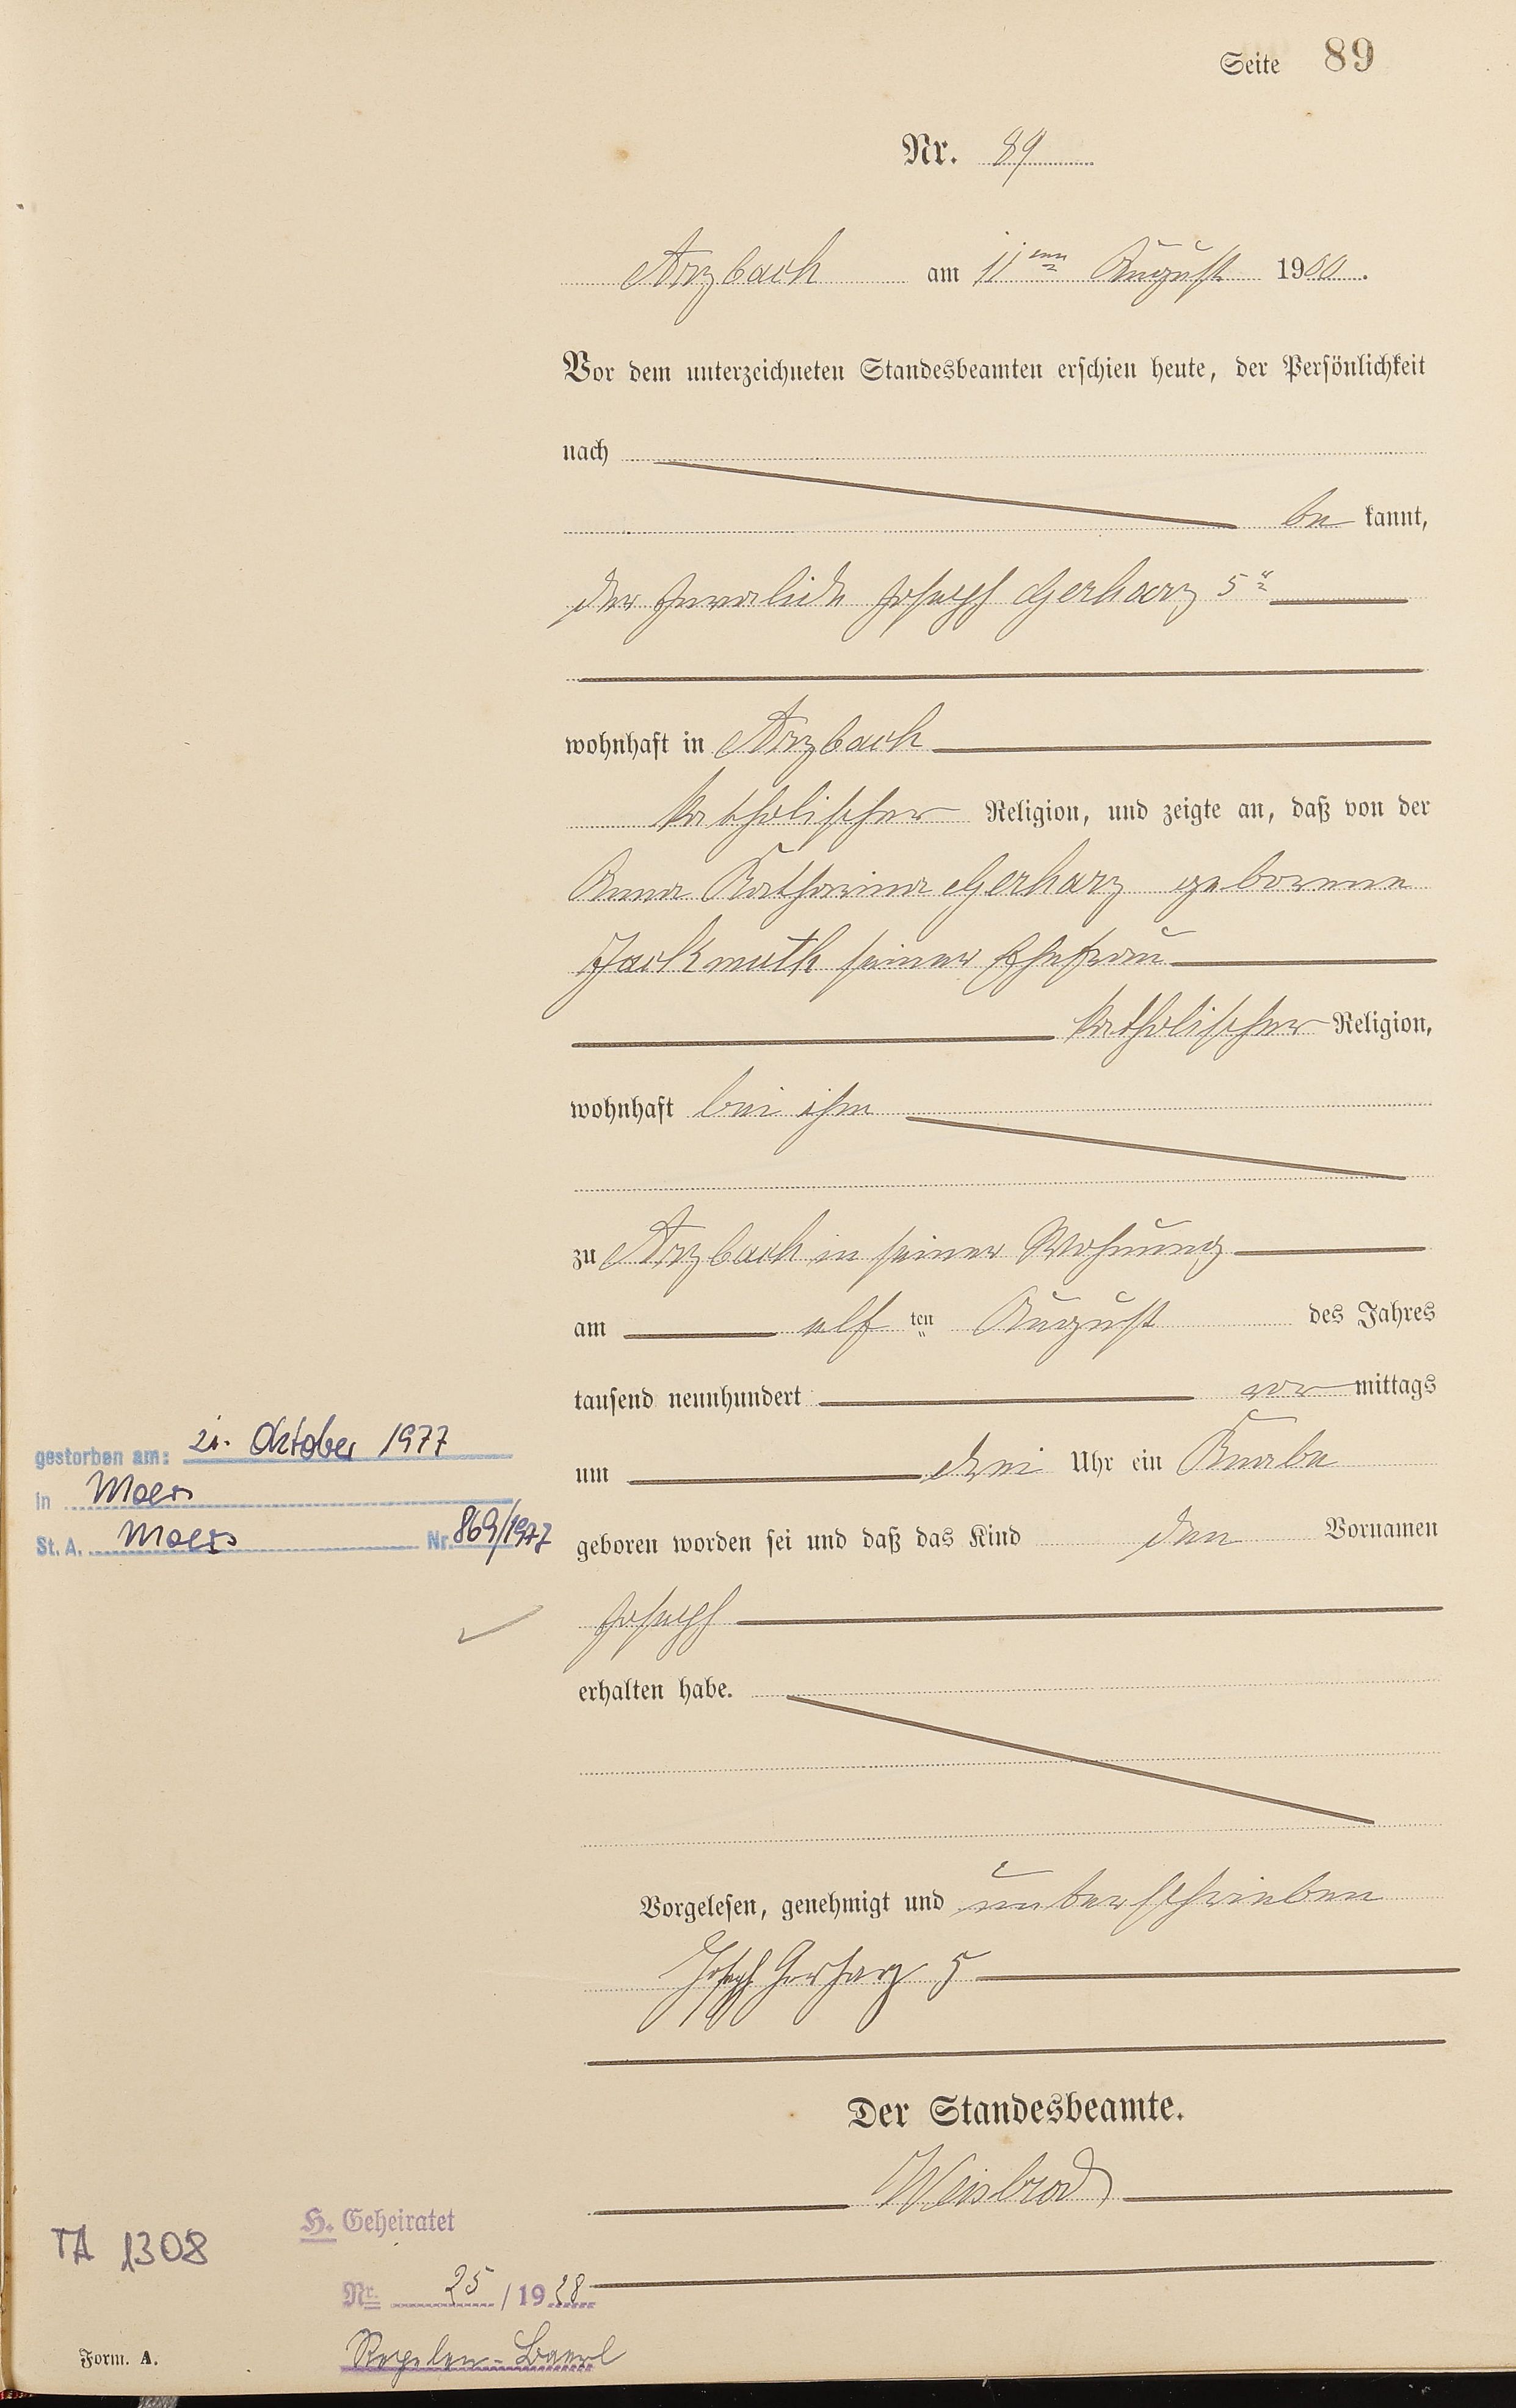 Seite 89
Nr. 89
Arzbach am 11ten August 1900.
Vor dem unterzeichneten Standesbeamten erschien heute, der Persönlichkeit
nach
be kannt,
der Invalide Joseph Gerharz 5r
wohnhaft in Arzbach
katholischer Religion, und zeigte an, daß von der
Anna Katharina Gerharz geborene
Jackmuth seiner Ehefrau
katholischer Religion,
wohnhaft bei ihm
zu Arzbach in seiner Wohnung
am elf ten August des Jahres
tausend neunhundert vor mittags
um drei Uhr ein Knabe
geboren worden sei und daß das Kind den Vornamen
Joseph
erhalten habe.
Vorgelesen, genehmigt und unterschrieben
Joseph Gerharz 5
Der Standesbeamte.
Weisbrod
gestorben am: 21. Oktober 1977
in Moers
St. A. Moers Nr. 869/1977
TA 1308
H. Geheiratet
Nr. 25 / 1928
Repelen-Baerl
Form. A.